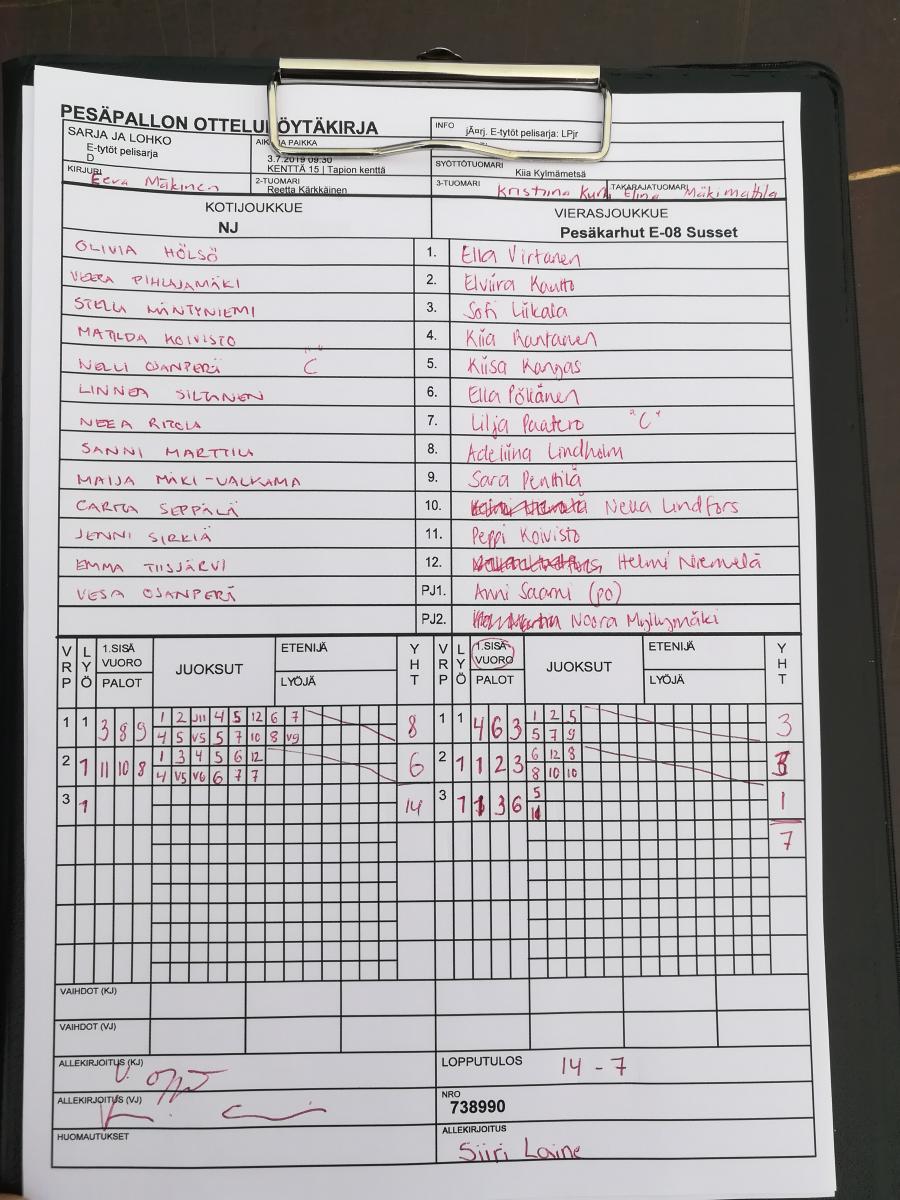 PESÄPALLON OTTELUPÖYTÄKIRJA
SARJA JA LOHKO
E-tytöt pelisarja
D
PAIKKA
3.7.2019 09:30
KENTTÄ 15 | Tapion kenttä
INFO
jÃ¤rj. E-tytöt pelisarja: LPjr
SYÖTTÖTUOMARI
Kiia Kylmämetsä
KIRJURI
Eeva Mäkinen
2-TUOMARI
Reetta Kärkkäinen
3-TUOMARI
Kristiina
TAKARAJATUOMARI
Elina Mäkimattila
KOTIJOUKKUE
NJ
VIERASJOUKKUE
Pesäkarhut E-08 Susset
OLIVIA HÖLSÖ 1. Ella Virtanen
VEERA PIHLAJAMÄKI 2. Elviira Kautto
STELLA MÄNTYNIEMI 3. Sofi Liikala
MATILDA KOIVISTO 4. Kiia Rantanen
NELLI OJANPERÄ "C" 5. Kiisa Kangas
LINNEA SILTANEN 6. Ella Pökänen
NEEA RITOLA 7. Lilja Paatero "C"
SANNI MARTTILA 8. Adeliina Lindholm
MAIJA MÄKI-VALKAMA 9. Sara Penttilä
CARITA SEPPÄLÄ 10. Nella Lindfors
JENNI SIRKIÄ 11. Peppi Koivisto
EMMA TIISJÄRVI 12. Helmi Niemelä
VESA OJANPERÄ PJ1. Anni Saarni (po)
PJ2. Noora Myllymäki
VRP LYÖ 1.SISÄ VUORO PALOT JUOKSUT ETENIJÄ LYÖJÄ YHT VRP LYÖ 1.SISÄ VUORO PALOT JUOKSUT ETENIJÄ LYÖJÄ YHT
1 1 3 8 9 1 2 J11 4 5 12 6 7 8 1 1 4 6 3 1 2 5 3
4 5 V5 5 7 10 8 V9 5 7 9
2 1 11 10 8 1 3 4 5 6 12 6 2 1 1 2 3 6 12 8 3
4 V5 V6 6 7 7 8 10 10
3 1 14 3 1 1 3 6 5 1
11
7
VAIHDOT (KJ)
VAIHDOT (VJ)
ALLEKIRJOITUS (KJ)
LOPPUTULOS 14 - 7
ALLEKIRJOITUS (VJ)
NRO
738990
HUOMAUTUKSET
ALLEKIRJOITUS
Siiri Laine